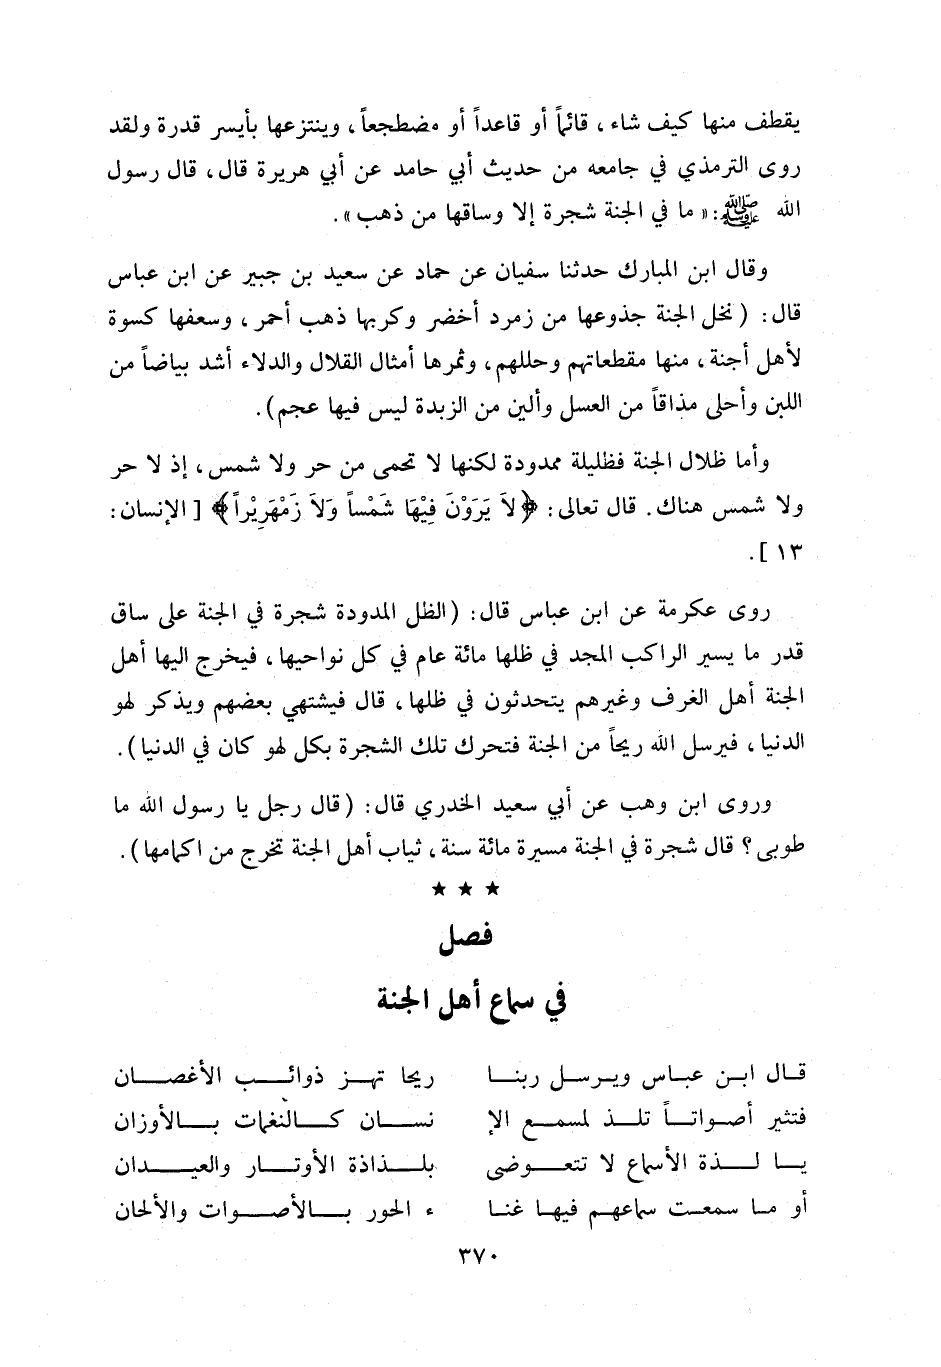 يقطف منها كيف شاء ، قائماً أو قاعداً أو مضطجعاً ، وينتزعها بأيسر قدرة ولقد
روى الترمذي في جامعه من حديث أبي حامد عن أبي هريرة قال ، قال رسول
الله ﷺ : « ما في الجنة شجرة إلا وساقها من ذهب » .
وقال ابن المبارك حدثنا سفيان عن حماد عن سعيد بن جبير عن ابن عباس
قال : ( نخل الجنة جذوعها من زمرد أخضر وكربها ذهب أحمر ، وسعفها كسوة
لأهل أجنة ، منها مقطعاتهم وحللهم ، وثمرها أمثال القلال والدلاء أشد بياضاً من
اللبن وأحلى مذاقاً من العسل وألين من الزبدة ليس فيها عجم ) .
وأما ظلال الجنة فظليلة ممدودة لكنها لا تحمى من حر ولا شمس ، إذ لا حر
ولا شمس هناك . قال تعالى : ﴿ لاَ يَرَوْنَ فِيْهَا شَمْساً وَلاَ زَمْهَرِيْراً ﴾ [ الإنسان :
١٣ ] .
روى عكرمة عن ابن عباس قال : ( الظل المدودة شجرة في الجنة على ساق
قدر ما يسير الراكب المجد في ظلها مائة عام في كل نواحيها ، فيخرج اليها أهل
الجنة أهل الغرف وغيرهم يتحدثون في ظلها ، قال فيشتهي بعضهم ويذكر لهو
الدنيا ، فيرسل الله ريحاً من الجنة فتحرك تلك الشجرة بكل لهو كان في الدنيا ) .
وروى ابن وهب عن أبي سعيد الخدري قال : ( قال رجل يا رسول الله ما
طوبى ؟ قال شجرة في الجنة مسيرة مائة سنة ، ثياب أهل الجنة تخرج من اكمامها ) .
★ ★ ★
فصل
في سماع أهل الجنة
قال ابن عباس ويرسل ربنا ريحا تهز ذوائب الأغصان
فتثير أصواتاً تلذ لمسمع الإ نسان كالنغمات بالأوزان
يا لذة الأسماع لا تتعوضى بلذاذة الأوتار والعيدان
أو ما سمعت سماعهم فيها غنا ء الحور بالأصوات والألحان
٣٧٠